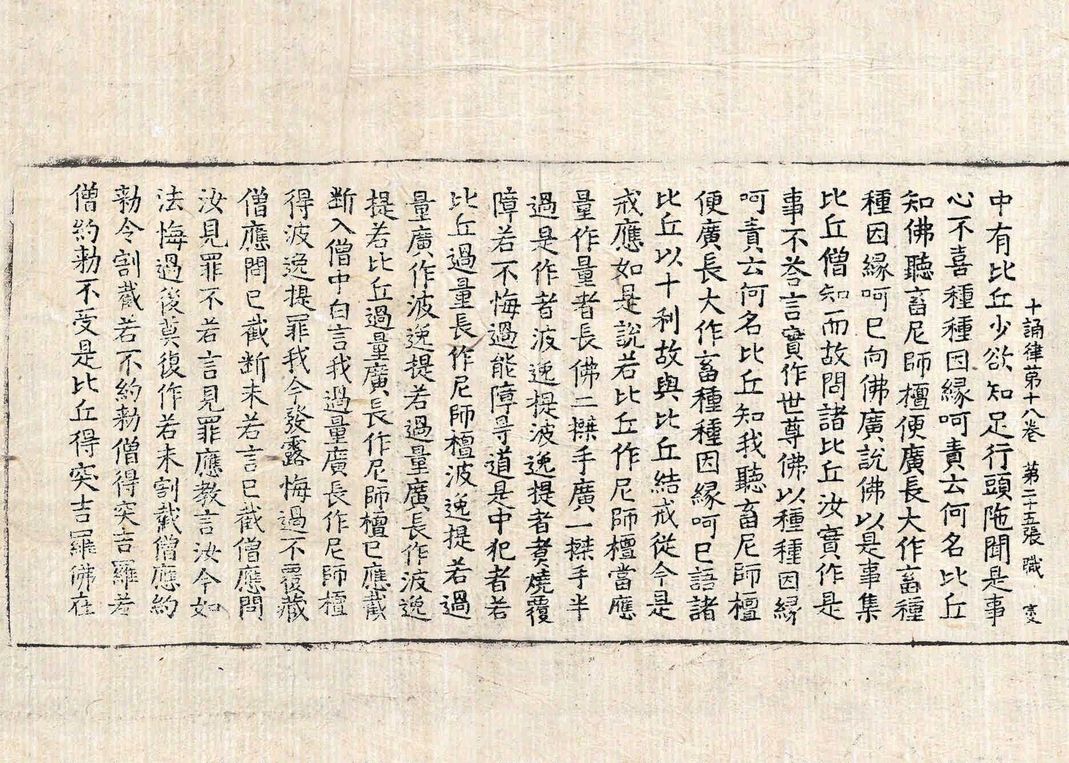 十誦律苐十八卷　苐二十五張　職
中有比丘少欲知足行頭陁聞是事
心不喜種種因緣呵責云何名比丘
知佛聽畜尼師檀便廣長大作畜種
種因緣呵已向佛廣說佛以是事集
比丘僧知而故問諸比丘汝實作是
事不荅言實作世尊佛以種種因緣
呵責云何名比丘知我聽畜尼師檀
便廣長大作畜種種因緣呵已語諸
比丘以十利故與比丘結戒從今是
戒應如是說若比丘作尼師檀當應
量作量者長佛二搩手廣一搩手半
過是作者波逸提波逸提者煑燒覆
障若不悔過能障㝵道是中犯者若
比丘過量長作尼師檀波逸提若過
量廣作波逸提若過量廣長作波逸
提若比丘過量廣長作尼師檀已應截
断入僧中白言我過量廣長作尼師檀
得波逸提罪我今發露悔過不覆藏
僧應問已截断未若言已截僧應問
汝見罪不若言見罪應教言汝今如
法悔過後莫復作若未割截僧應約
勑令割截若不約勑僧得突吉羅若
僧約勑不受是比丘得突吉羅佛在